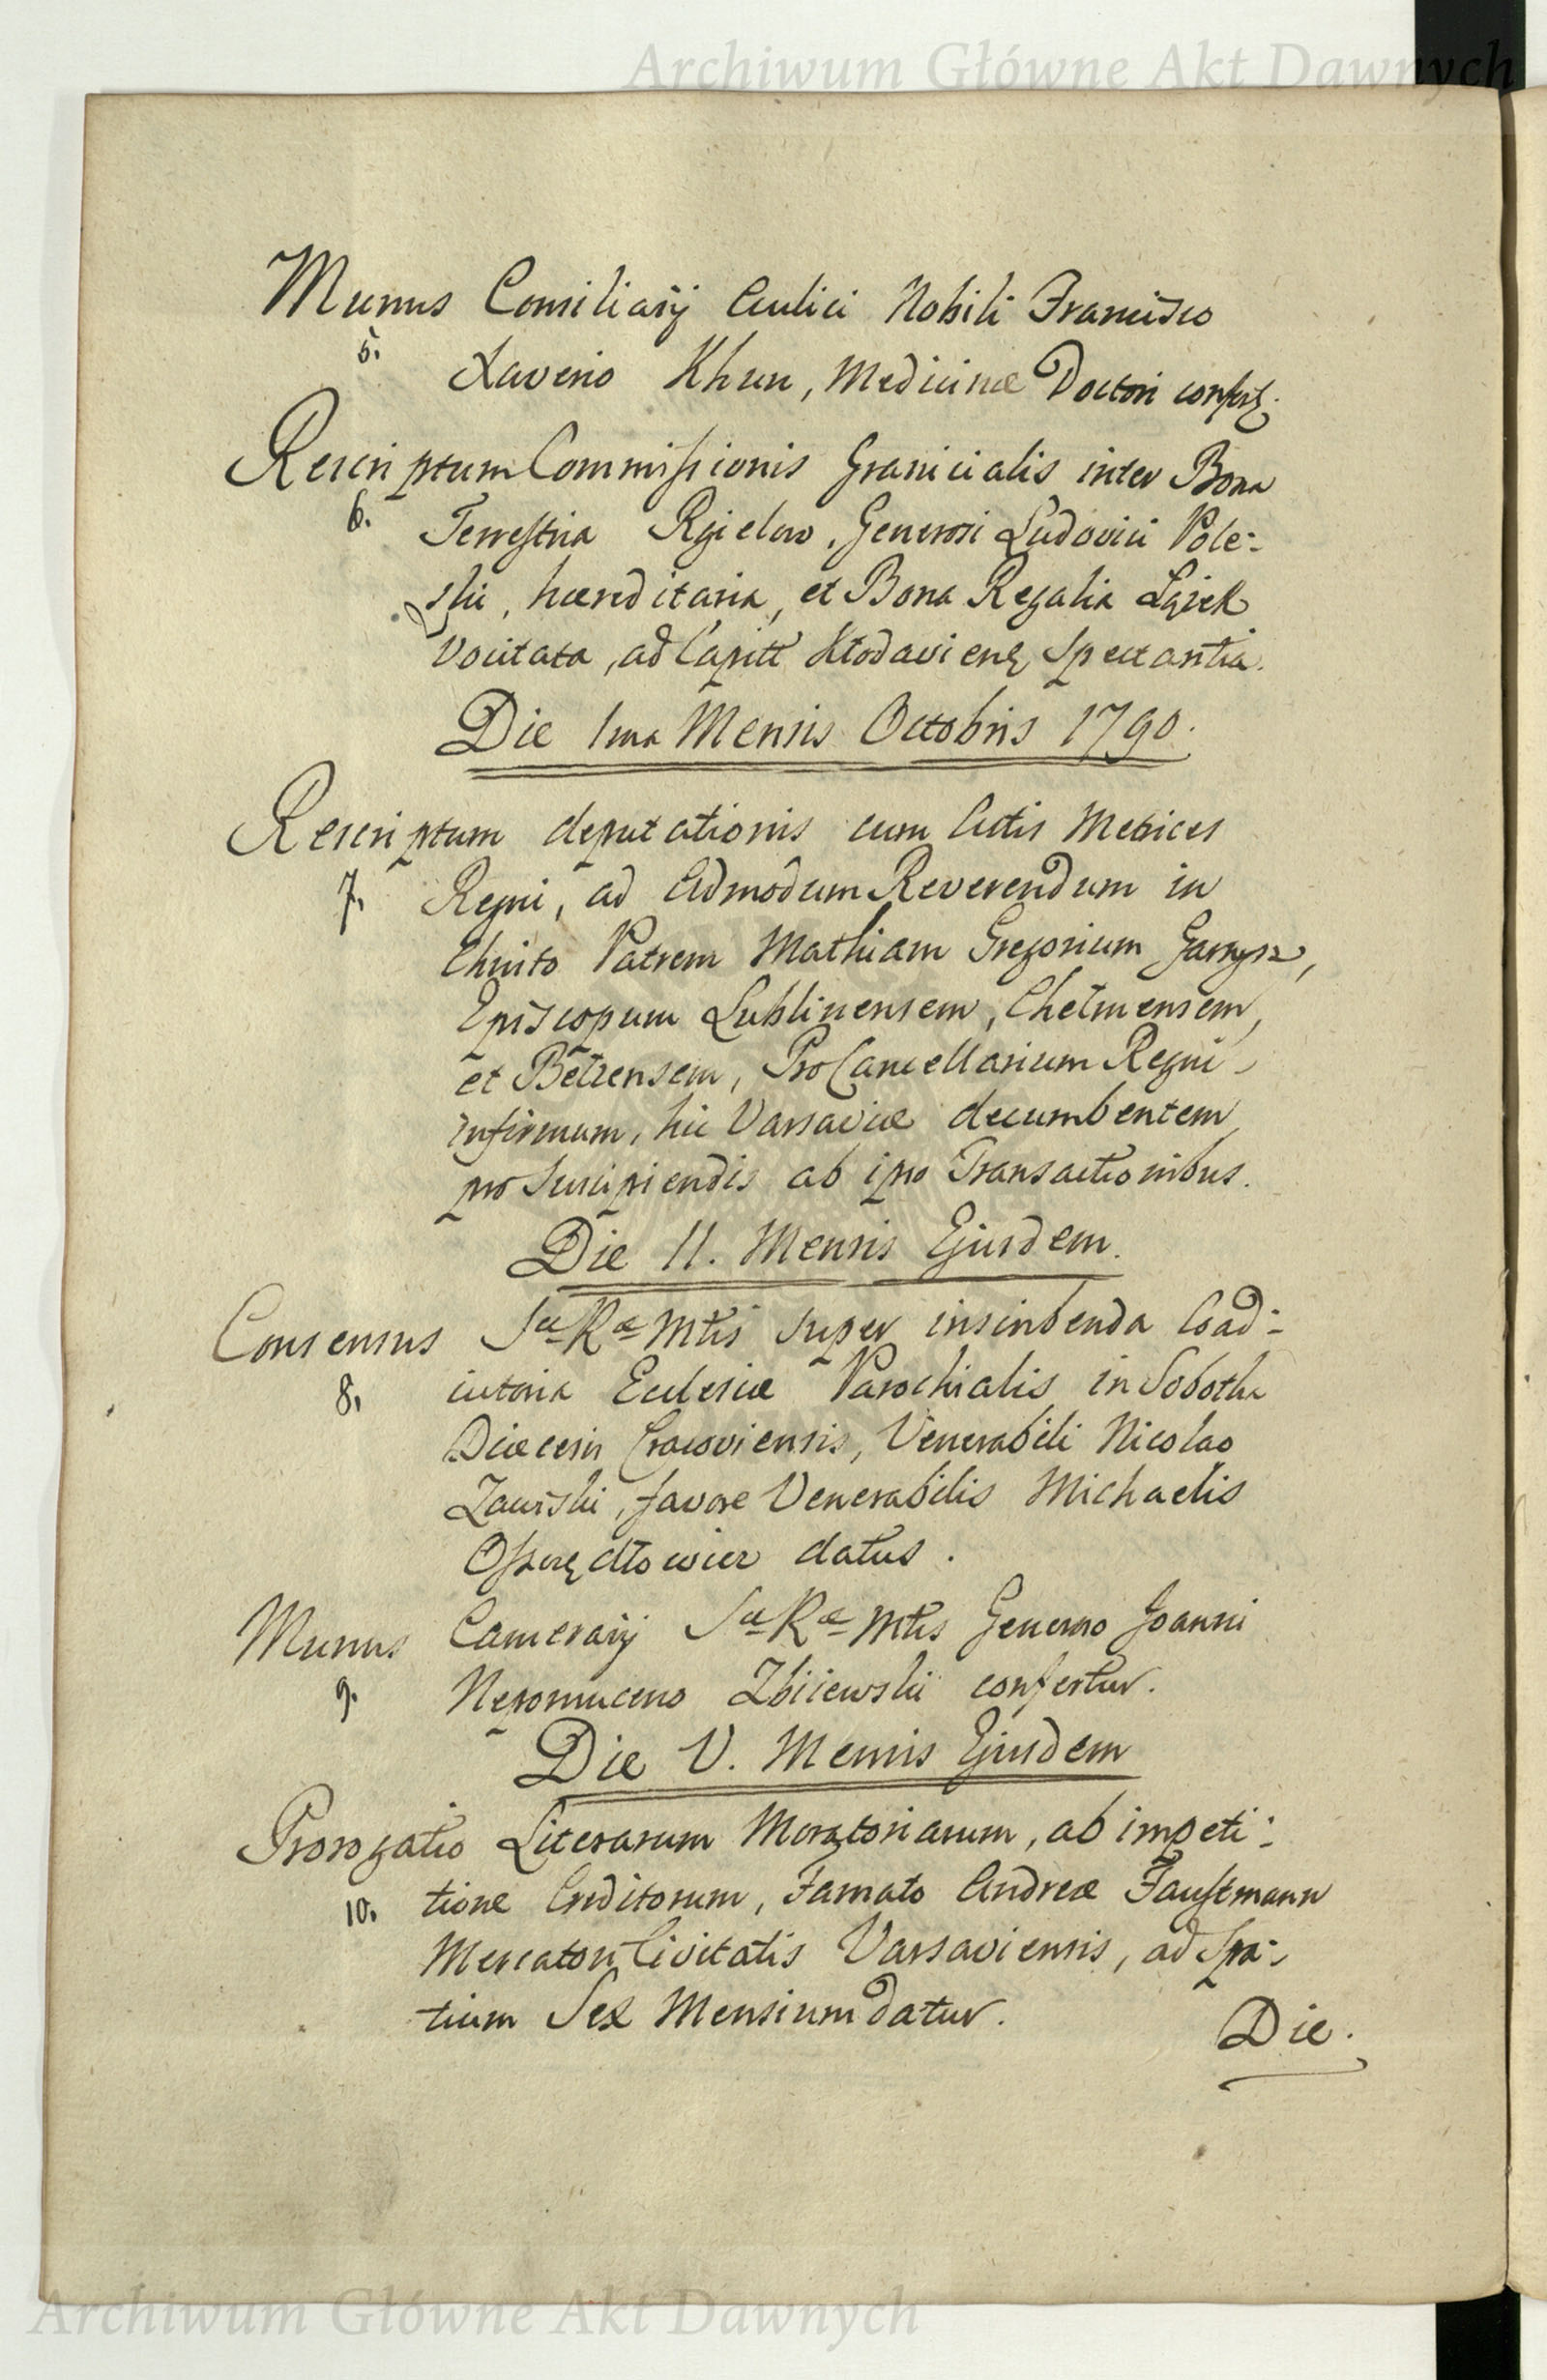 Archiwum Główne Akt Dawnych
Munus Consiliarij Aulici Nobili Francisco
5. Xaverio Khun, Medicinæ Doctori confert.
Rescriptum Commissionis Granicialis inter Bona
6. Terrestria Rgielew, Generosi Ludovici Pole-
ski, hæreditaria, et Bona Regalia Łąiek
Vocitata, ad Capitt Kłodavienę Spectantia.
Die 1ma Mensis Octobris 1790.
Rescriptum deputationis cum Actis Metrices
7. Regni, ad Admodum Reverendum in
Christo Patrem Mathiam Gregorium Garnysz,
Episcopum Lublinensem, Chełmensem,
et Bełzensem, ProCancellarium Regni
infirmum, hic Varsaviæ decumbentem
pro Suscipiendis ab ipso Transactionibus.
Die II. Mensis Ejusdem.
Consensus Sæ Ræ Mtis super inscribenda Coad-
8. iutoria Ecclesiæ Parochialis in Sobotka
Diæcesis Cracoviensis, Venerabili Nicolao
Zawiski, favore Venerabilis Michaelis
datus.
Munus Camerarij Sæ Ræ Mtis Generoso Joanni
9. Nepomuceno Zbiiewski confertur.
Die V. Mensis Ejusdem
Prorogatio Literarum Moratoriarum, ab impeti-
10. tione Creditorum, Famato Andreæ Faustmann
Mercatori Civitatis Varsaviensis, ad Spa-
tium Sex Mensium datur.
Die.
Archiwum Główne Akt Dawnych